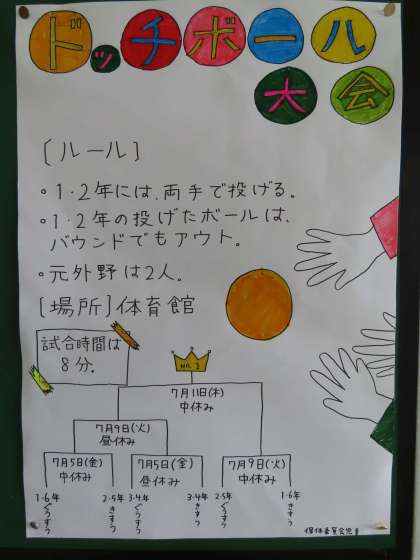 ドッチボール
大会
[ルール]
・1・2年には、両手で投げる。
・1・2年の投げたボールは、
バウンドでもアウト。
・元外野は2人。
[場所]体育館
試合時間は
8分.
NO.1
7月11日(木)
中休み
7月9日(火)
昼休み
7月5日(金)
中休み
7月5日(金)
昼休み
7月9日(火)
中休み
1・6年
ぐうすう
2・5年
きすう
3・4年
ぐうすう
3・4年
きすう
2・5年
ぐうすう
1・6年
きすう
保体委員会児童